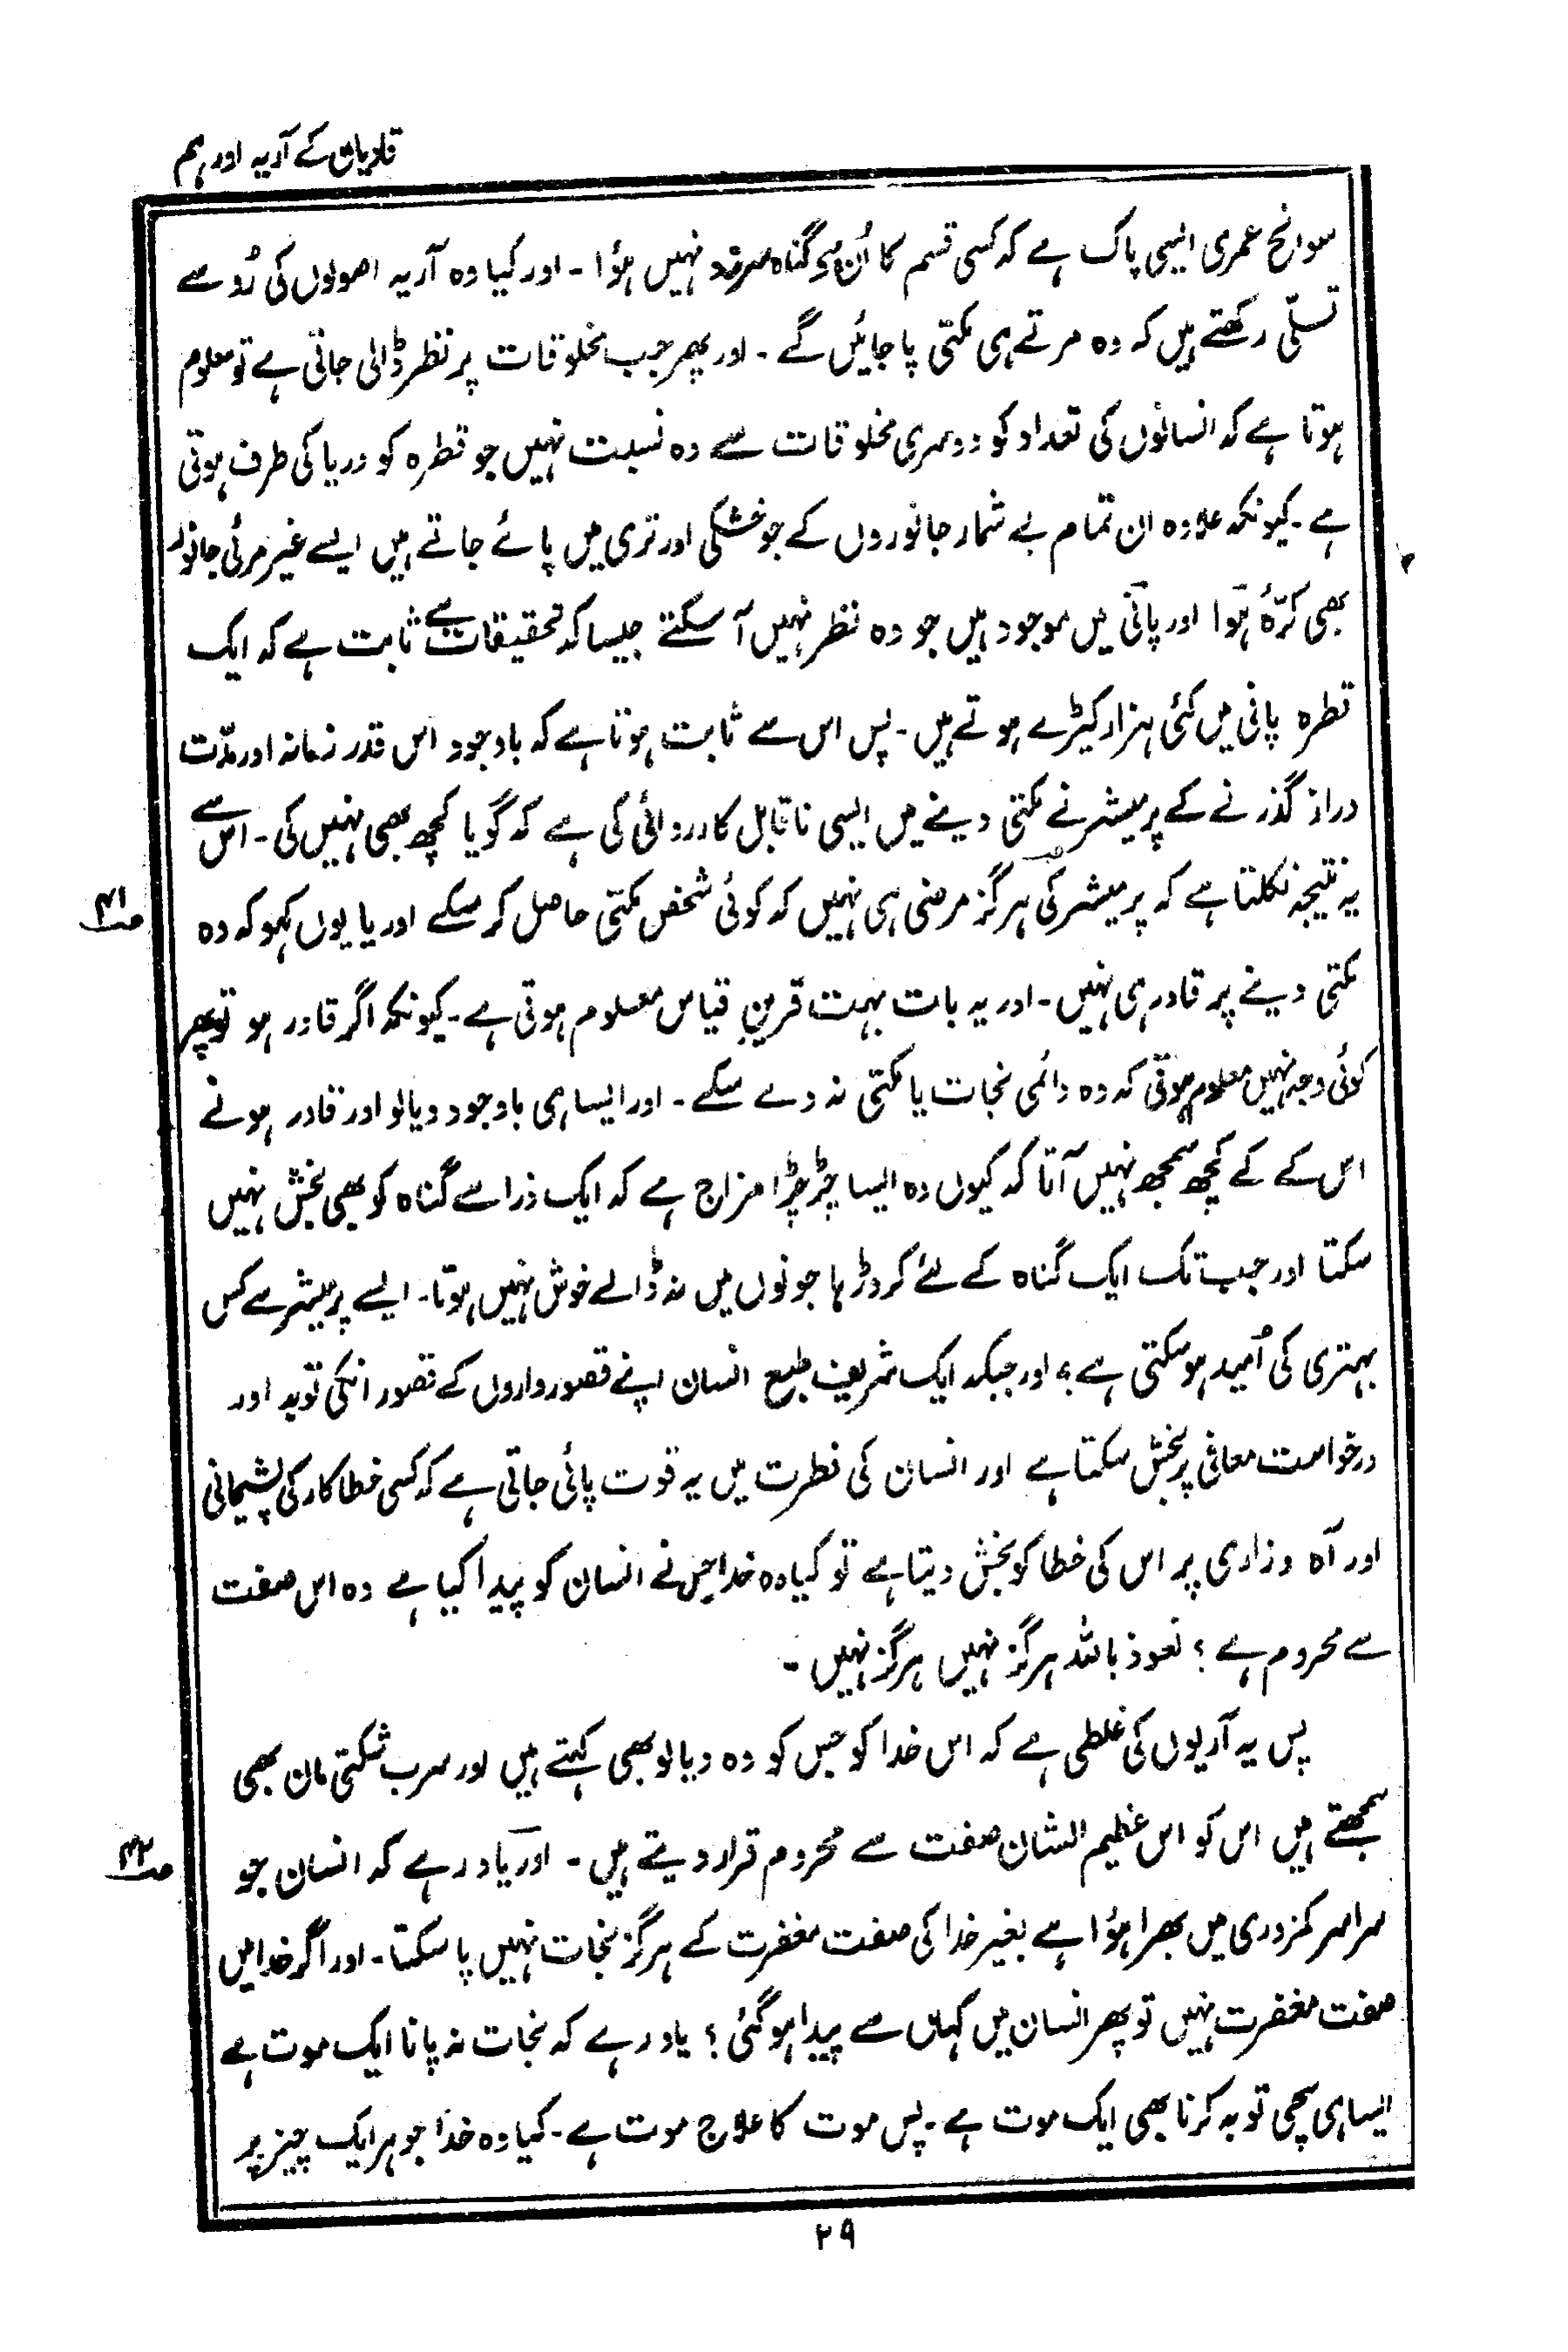 قادیان کے آریہ اور ہم
سوانح عمری ایسی پاک ہے کہ کسی قسم کا اُن سے گناہ سرزد نہیں ہؤا ۔ اور کیا وہ آریہ اصولوں کی رُو سے
تسلّی رکھتے ہیں کہ وہ مرتے ہی مکتی پا جائیں گے ۔ اور پھر جب مخلوقات پر نظر ڈالی جاتی ہے تو معلوم
ہوتا ہے کہ انسانوں کی تعداد کو دوسری مخلوقات سے وہ نسبت نہیں جو قطرہ کو دریا کی طرف ہوتی
ہے ۔ کیونکہ علاوہ ان تمام بے شمار جانوروں کے جو خشکی اور تری میں پائے جاتے ہیں ایسے غیر مرئی جانور
بھی کرّہٴ ہَوا اور پانی میں موجود ہیں جو وہ نظر نہیں آ سکتے جیسا کہ تحقیقات سے ثابت ہے کہ ایک
قطرہ پانی میں کئی ہزار کیڑے ہوتے ہیں ۔ پس اس سے ثابت ہوتا ہے کہ باوجود اس قدر زمانہ اور مدّت
دراز گذرنے کے پرمیشر نے مکتی دینے میں ایسی ناقابل کارروائی کی ہے کہ گویا کچھ بھی نہیں کی ۔ اس سے
یہ نتیجہ نکلتا ہے کہ پرمیشر کی ہرگز مرضی ہی نہیں کہ کوئی شخص مکتی حاصل کر سکے اور یا یوں کہو کہ وہ
صـ۴۱
مکتی دینے پر قادر ہی نہیں ۔ اور یہ بات بہت قرینِ قیاس معلوم ہوتی ہے ۔ کیونکہ اگر قادر ہو تو پھر
کوئی وجہ نہیں معلوم ہوتی کہ وہ دائمی نجات یا مکتی نہ دے سکے ۔ اور ایسا ہی باوجود دیالو اور قادر ہونے
اس کے کے کچھ سمجھ نہیں آتا کہ کیوں وہ ایسا چڑچڑا مزاج ہے کہ ایک ذرا سے گناہ کو بھی بخش نہیں
سکتا اور جب تک ایک گناہ کے لئے کروڑہا جونوں میں نہ ڈالے خوش نہیں ہوتا ۔ ایسے پرمیشر سے کس
بہتری کی اُمید ہو سکتی ہے ؟ اور جبکہ ایک شریف طبع انسان اپنے قصور واروں کے قصور انکی توبہ اور
درخواست معافی پر بخش سکتا ہے اور انسان کی فطرت میں یہ قوت پائی جاتی ہے کہ کسی خطا کار کی پشیمانی
اور آہ و زاری پر اس کی خطا کو بخش دیتا ہے تو کیا وہ خدا جس نے انسان کو پیدا کیا ہے وہ اس صفت
سے محروم ہے ؟ نعوذ باللہ ہرگز نہیں ہرگز نہیں ۔
پس یہ آریوں کی غلطی ہے کہ اس خدا کو جس کو وہ دیالو بھی کہتے ہیں اور سرب شکتی مان بھی
سمجھتے ہیں اس کو اس عظیم الشان صفت سے محروم قرار دیتے ہیں ۔ اور یاد رہے کہ انسان جو
صـ۴۲
سراسر کمزوری میں بھرا ہؤا ہے بغیر خدا کی صفت مغفرت کے ہرگز نجات نہیں پا سکتا ۔ اور اگر خدا میں
صفت مغفرت نہیں تو پھر انسان میں کہاں سے پیدا ہو گئی ؟ یاد رہے کہ نجات نہ پانا ایک موت ہے
ایسا ہی سچی توبہ کرنا بھی ایک موت ہے ۔ پس موت کا علاج موت ہے ۔ کیا وہ خدا جو ہر ایک چیز پر
۲۹